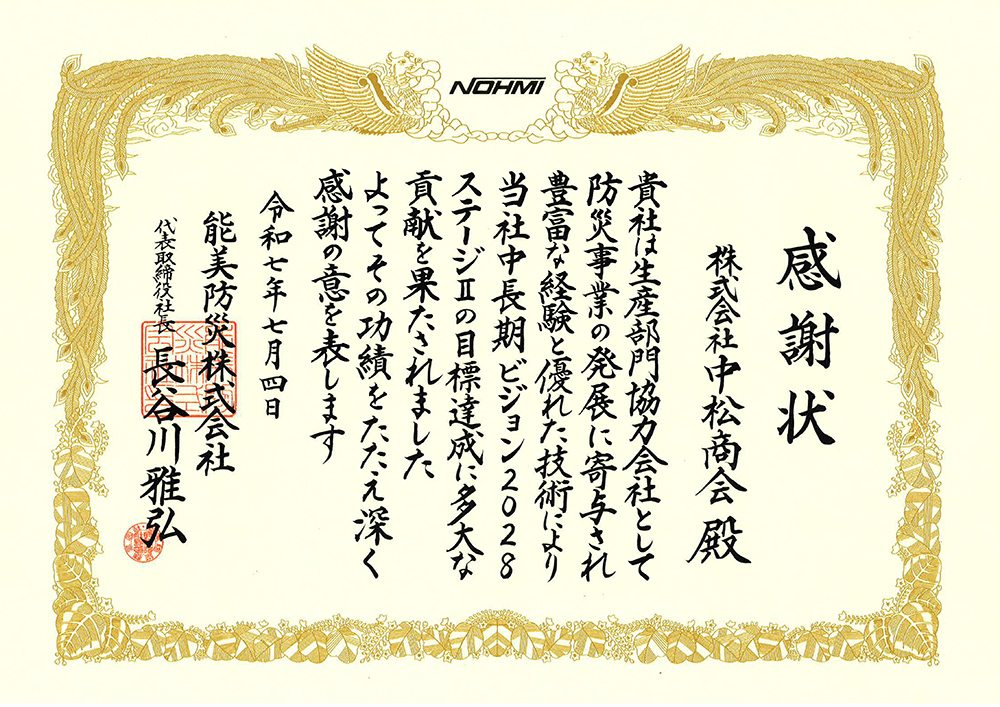 NOHMI
感謝状
株式会社中松商会殿
貴社は生産部門協力会社として
防災事業の発展に寄与され
豊富な経験と優れた技術により
当社中長期ビジョン2028
ステージⅡの目標達成に多大な
貢献を果たされました
よってその功績をたたえ深く
感謝の意を表します
令和七年七月四日
能美防災株式会社
代表取締役社長
長谷川雅弘